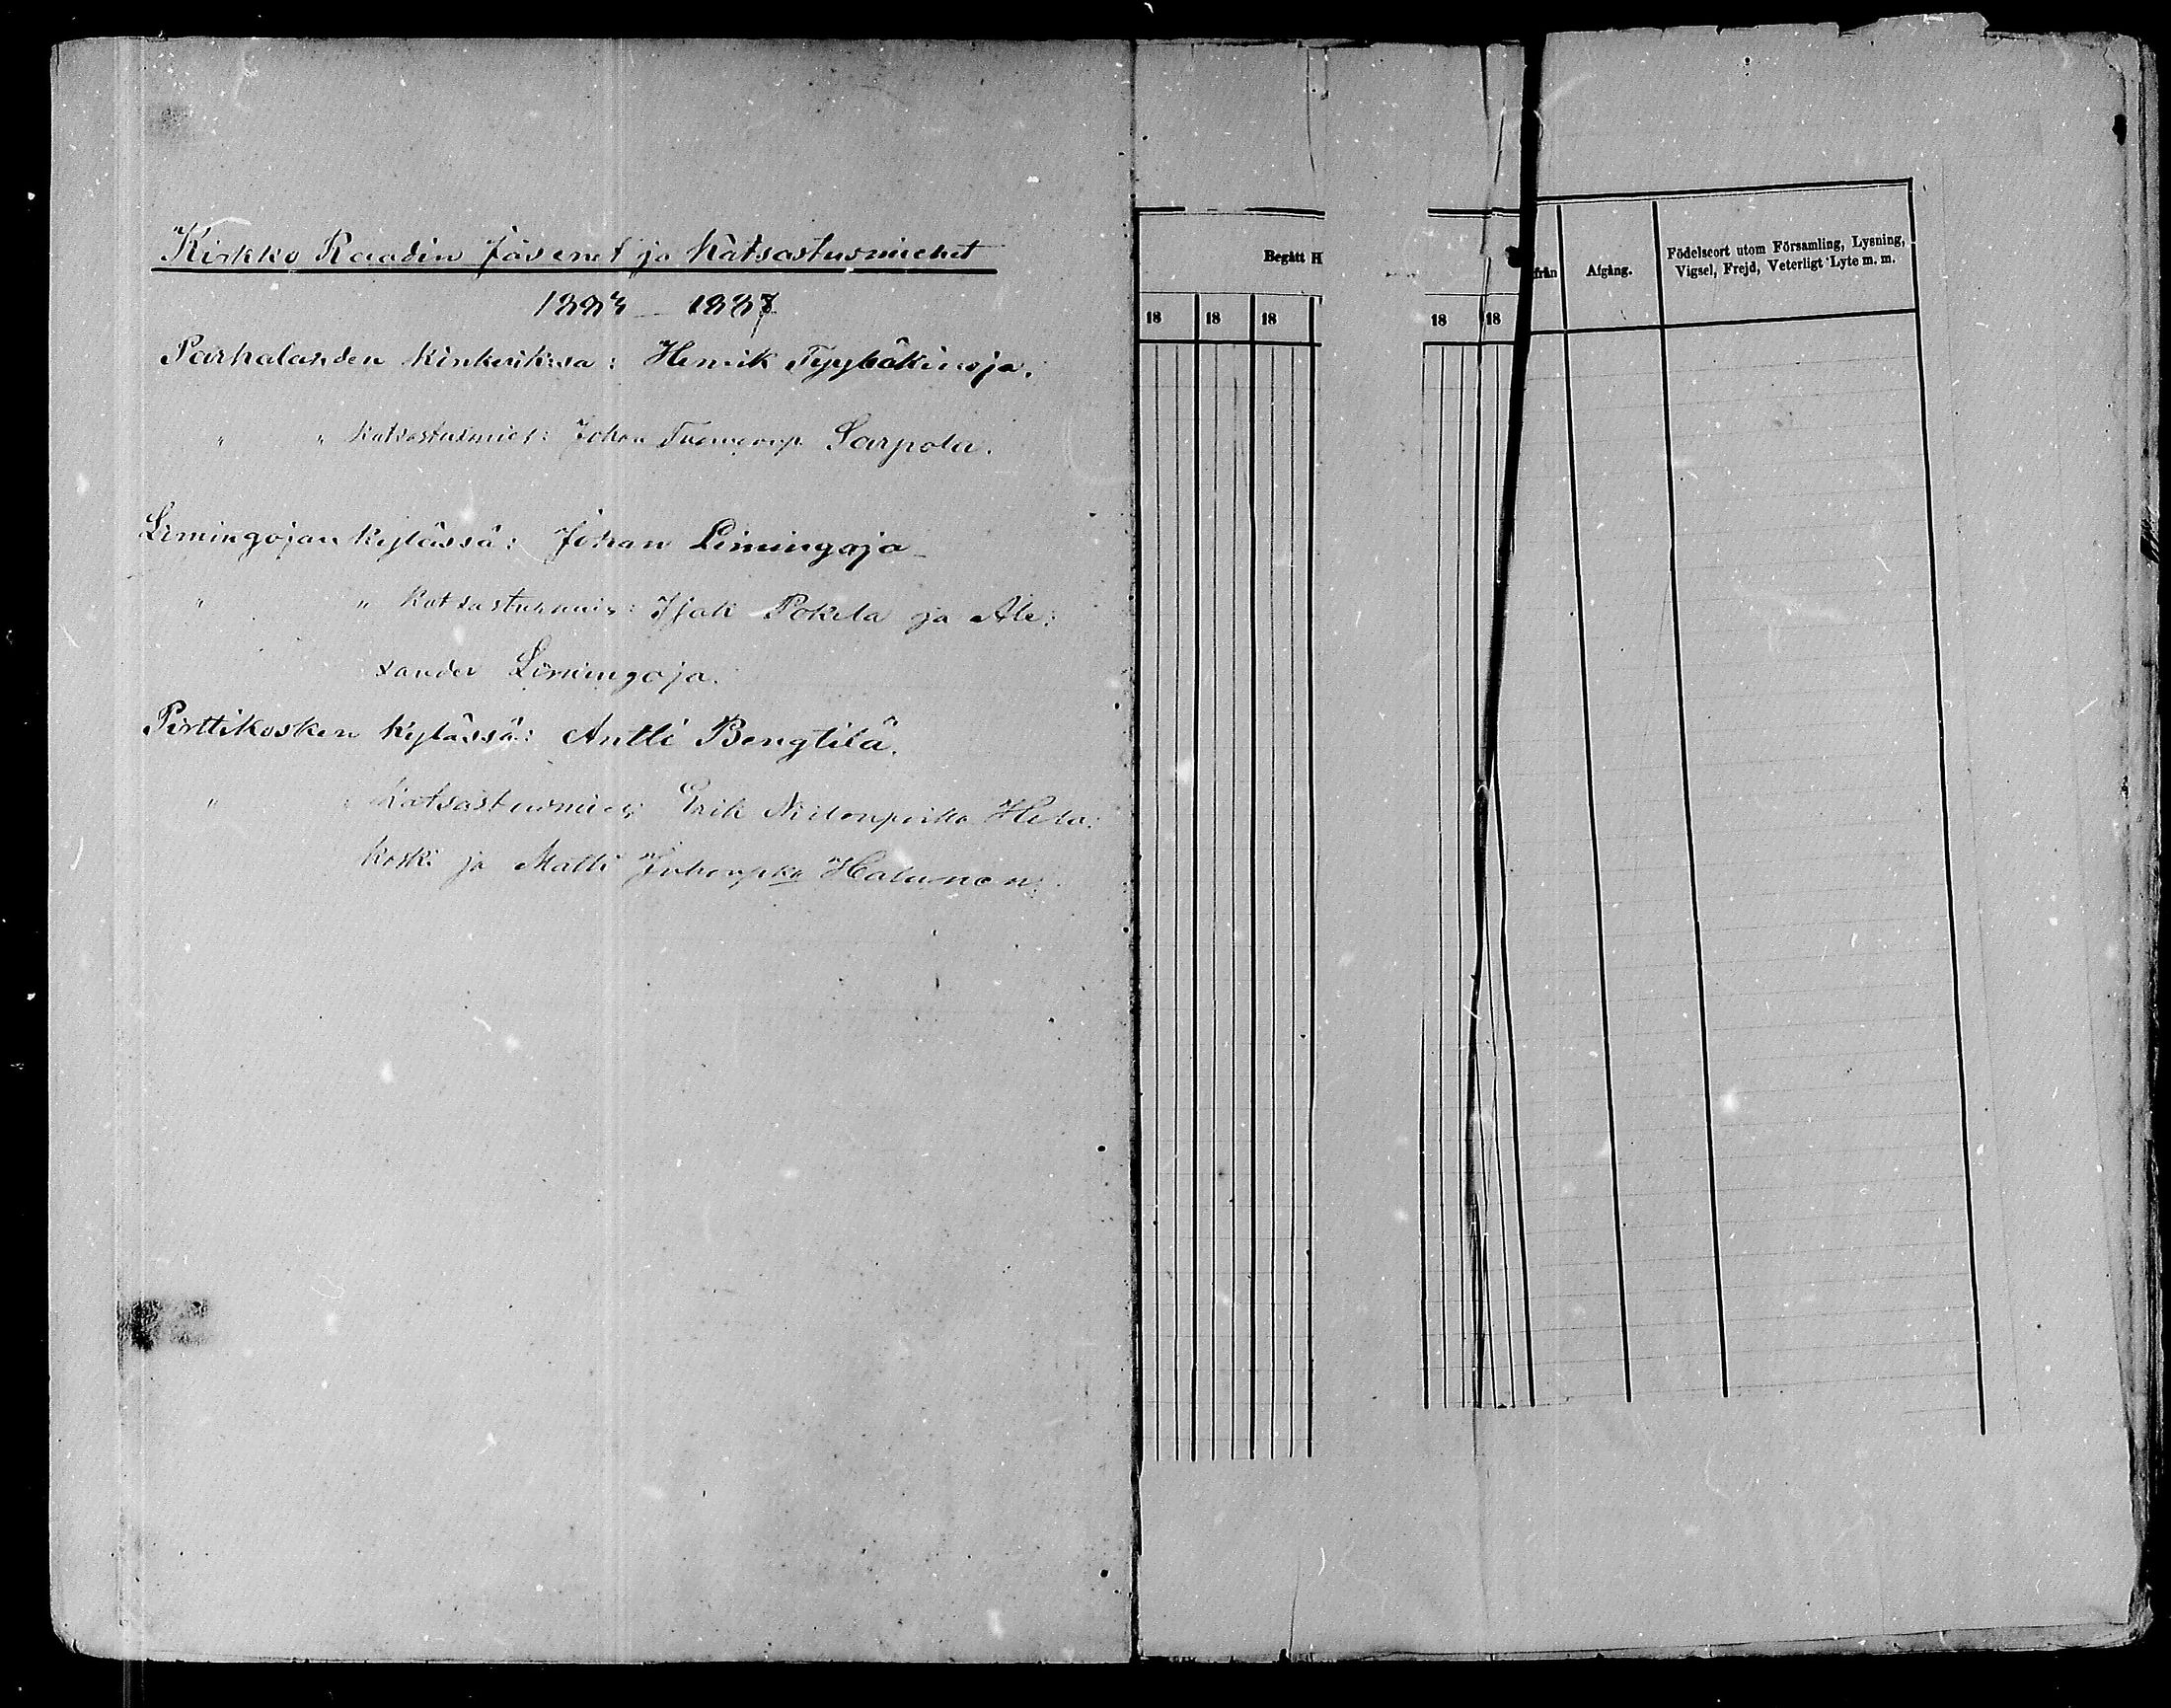 Kirkko Raadin Jäsenet ja Katsastusmiehet
1883 – 1887
Parhalanden Kinkerikssa: Henrik Typpäkinoja.
" " Katsastusmies: Johan Sarpola.
Limingojan Kylässä: Johan Limingoja
" " Katsastusmies: Isak Pokela ja Ale:
xander Limingoja.
Pirttikosken Kylässä: Antti Bengtilä.
" " Katsastusmies; Erik Niilonpoika Hela:
koski ja Matti Juhonpka Halunen.
Begått H
18 18 18 18 18
från Afgång. Födelseort utom Församling, Lysning,
Vigsel, Frejd, Veterligt Lyte m. m.